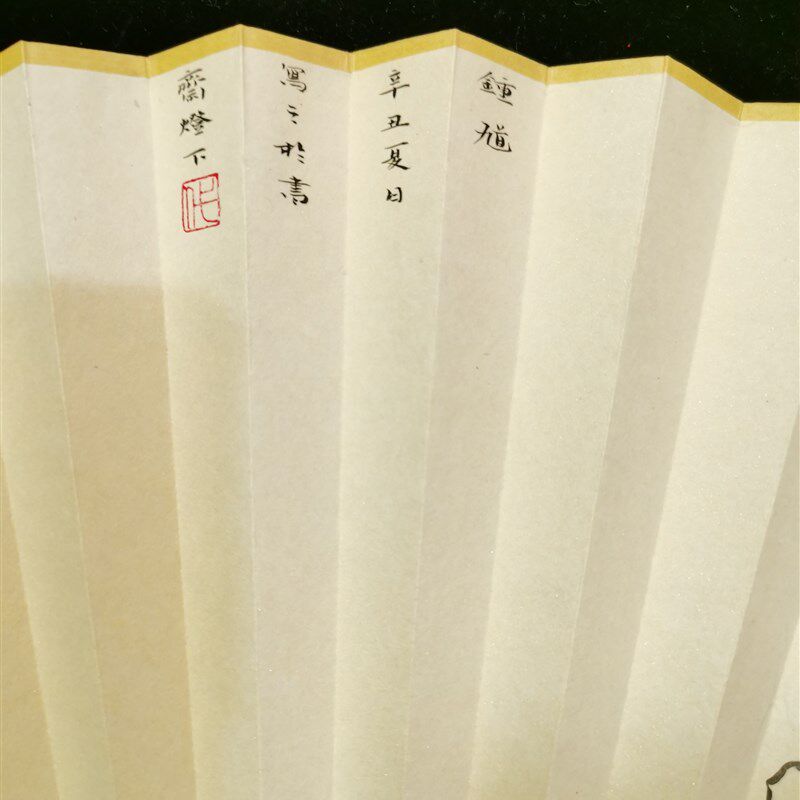 鍾馗
辛丑夏日
寫之於書
齋燈下